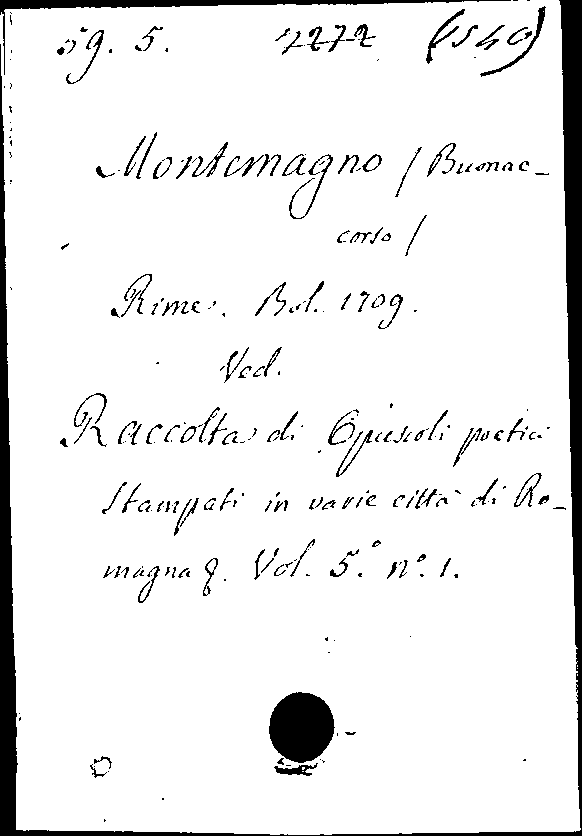 59. 5. 7272 (1549)
Montemagno / Buonac-
corso /
Rime. Bol. 1709.
Ved.
Raccolta di Opuscoli poetici
Stampati in varie città di Ro-
magna &. Vol. 5.º nº. 1.